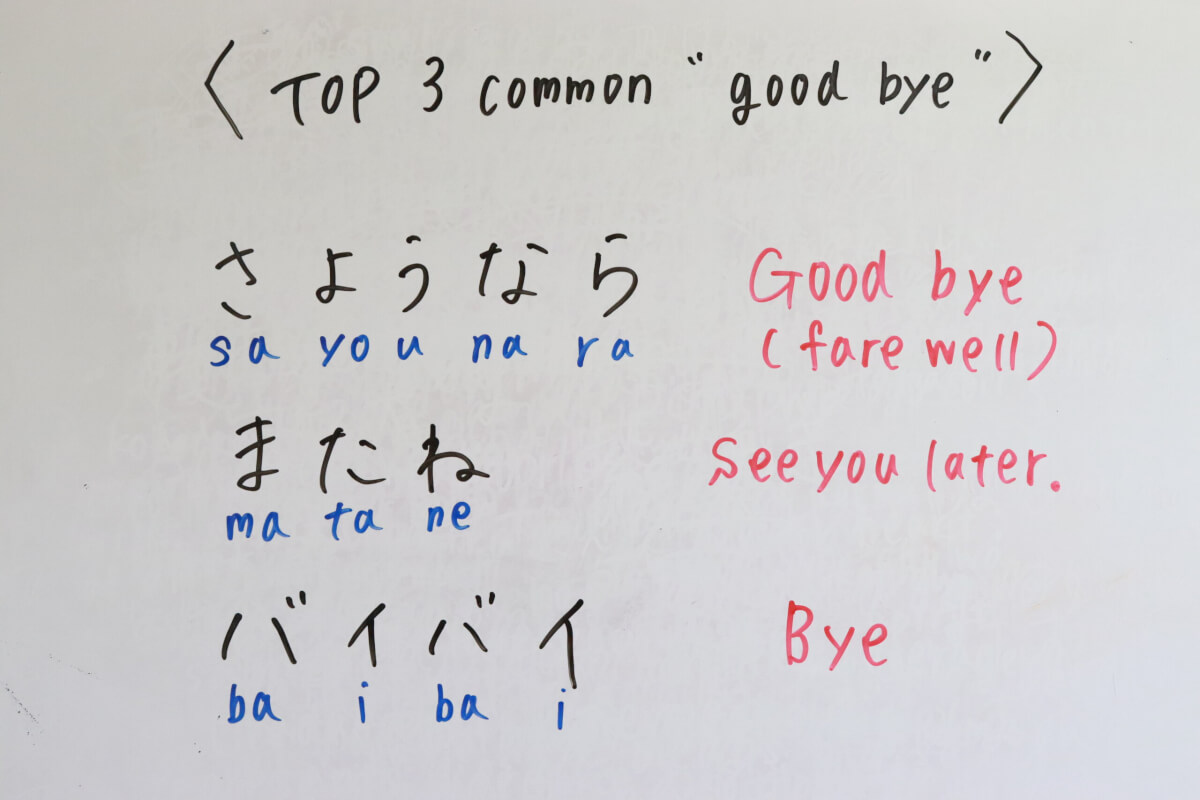 〈 TOP 3 common “good bye” 〉
さようなら Good bye
sa yo u na ra (fare well)
またね See you later.
ma ta ne
バイバイ Bye
ba i ba i